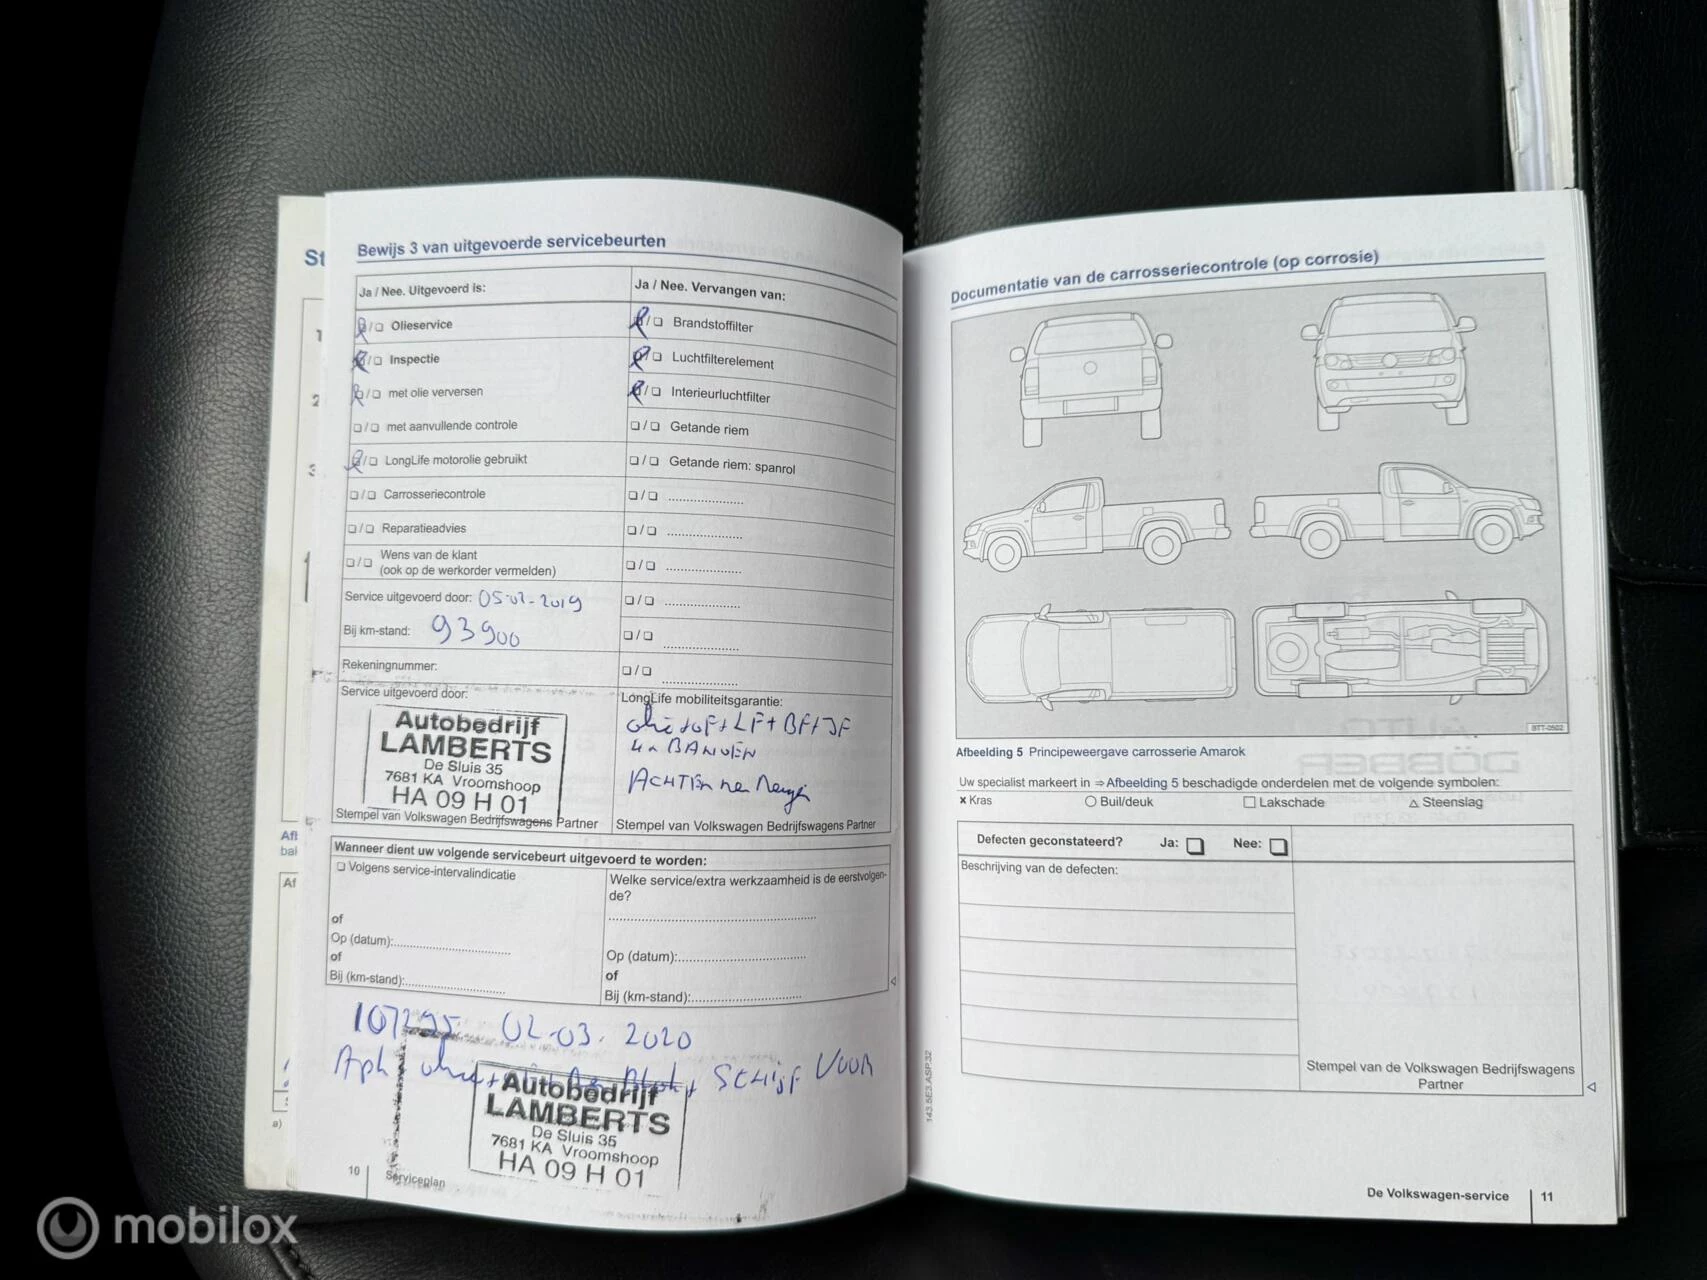 Bewijs 3 van uitgevoerde servicebeurten
Ja / Nee. Uitgevoerd is:
Ja / Nee. Vervangen van:
Olieservice
Brandstoffilter
Inspectie
Luchtfilterelement
met olie verversen
Interieurluchtfilter
met aanvullende controle
Getande riem
LongLife motorolie gebruikt
Getande riem: spanrol
Carrosseriecontrole
Reparatieadvies
Wens van de klant
(ook op de werkorder vermelden)
Service uitgevoerd door: 05-02-2019
Bij km-stand: 93900
Rekeningnummer:
Service uitgevoerd door:
Autobedrijf
LAMBERTS
De Sluis 35
7681 KA Vroomshoop
HA 09 H 01
Stempel van Volkswagen Bedrijfswagens Partner
LongLife mobiliteitsgarantie:
olie+oF+LF+BF+IF
4x BANDEN
ACHTER
Stempel van Volkswagen Bedrijfswagens Partner
Wanneer dient uw volgende servicebeurt uitgevoerd te worden:
Volgens service-intervalindicatie
of
Op (datum):
of
Bij (km-stand):
Welke service/extra werkzaamheid is de eerstvolgen-
de?
Op (datum):
of
Bij (km-stand):
107295 02-03. 2020
Apk olie+ SCHIJF VOOR
Autobedrijf
LAMBERTS
De Sluis 35
7681 KA Vroomshoop
HA 09 H 01
10
Serviceplan
Documentatie van de carrosseriecontrole (op corrosie)
BTT-0502
Afbeelding 5 Principeweergave carrosserie Amarok
Uw specialist markeert in ⇒Afbeelding 5 beschadigde onderdelen met de volgende symbolen:
x Kras
○ Buil/deuk
□ Lakschade
△ Steenslag
Defecten geconstateerd? Ja: Nee:
Beschrijving van de defecten:
Stempel van de Volkswagen Bedrijfswagens
Partner
143.5E3.ASP.32
De Volkswagen-service 11
mobilox